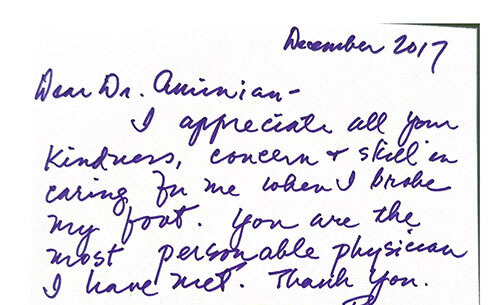 December 2017
Dear Dr. Aminian-
I appreciate all your
kindness, concern + skill in
caring for me when I broke
my foot. You are the
most personable physician
I have met. Thank you.